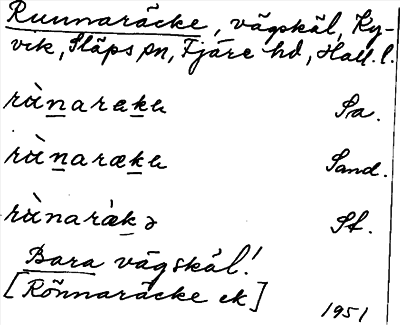 Runnaräcke, vägskäl, Ky-
vik, Släps sn, Fjäre hd, Hall. l.
rùnarækɐ Sa.
rùnarækɐ Sand.
rùnaràkə St.
Bara vägskäl!
[Rönnaräcke ek]
1951